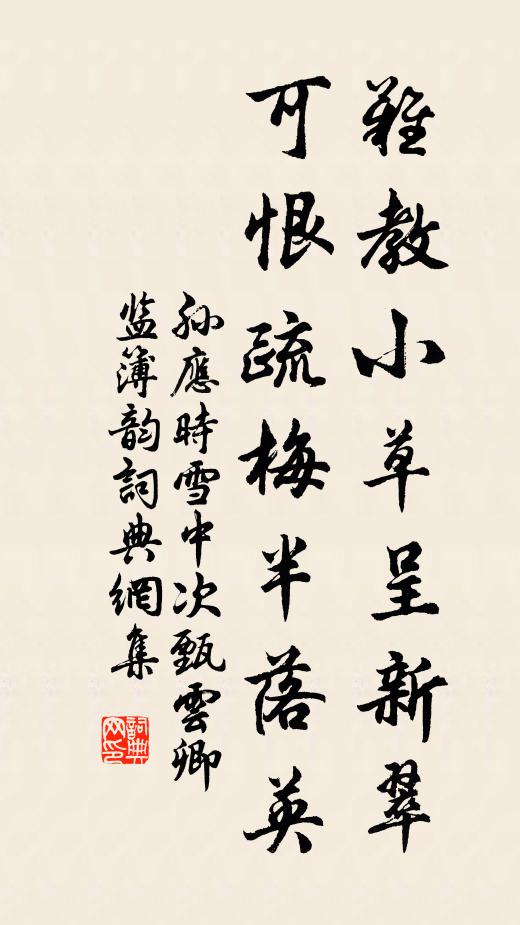 難教小草呈新翠
可恨疏梅半落英
孫應時雪中次甄雲卿
监簿韵詞典網集
詞典
网印